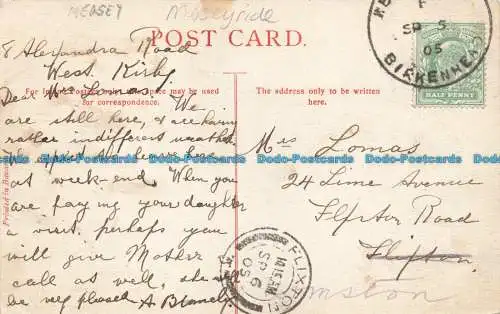 MERSEY
Merseyride
POST CARD.
8 Alexandra Road
West Kirby
Dear Mrs Lomas, We
are still here, & are having
rather indifferent weather.
We expect to leave here
at week-end. When you
are paying your daughter
a visit, perhaps you
will give Mother
call as well, she will
be very pleased A.
The address only to be written
here.
Mrs Lomas
24 Lime Avenue
Flixton Road
Flixton
Urmston
HALF PENNY
SP 5
05
BIRKENHEAD
FLIXTON
10.15 AM
SP 6
05
Printed in
for correspondence.
Dodo-Postcards Dodo-Postcards Dodo-Postcards Dodo-Postcards